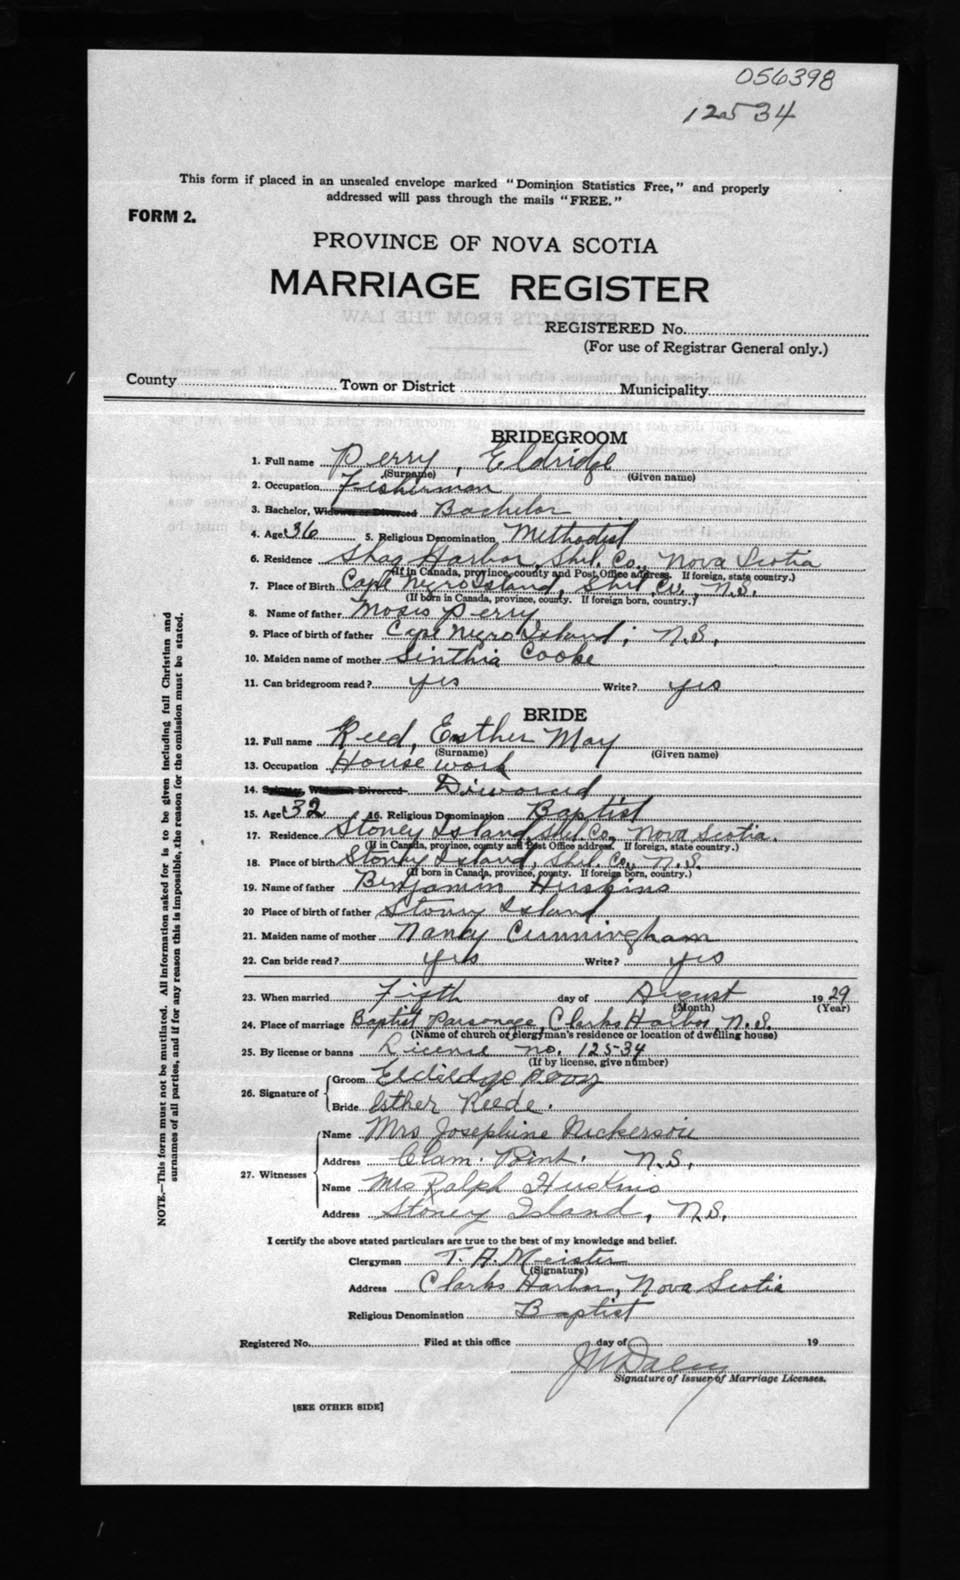 056398
12534
This form if placed in an unsealed envelope marked "Dominion Statistics Free," and properly
addressed will pass through the mails "FREE."
FORM 2.
PROVINCE OF NOVA SCOTIA
MARRIAGE REGISTER
REGISTERED No.
(For use of Registrar General only.)
County Town or District Municipality
BRIDEGROOM
1. Full name Perry, Eldridge
(Surname) (Given name)
2. Occupation Fisherman
3. Bachelor, Widower or Divorced Bachelor
4. Age 36 5. Religious Denomination Methodist
6. Residence Shag Harbor, Shel. Co., Nova Scotia
(If in Canada, province, county and Post Office address. If foreign, state country.)
7. Place of Birth Cape Negro Island, Shel. Co., N.S.
(If born in Canada, province, county. If foreign born, country.)
8. Name of father Moses Perry
9. Place of birth of father Cape Negro Island, N.S.
10. Maiden name of mother Sinthia Cooke
11. Can bridegroom read? yes Write? yes
BRIDE
12. Full name Reed, Esther May
(Surname) (Given name)
13. Occupation House work
14. Spinster, Widow or Divorced Divorced
15. Age 32 16. Religious Denomination Baptist
17. Residence Stoney Island, Shel. Co., Nova Scotia.
(If in Canada, province, county and Post Office address. If foreign, state country.)
18. Place of birth Stoney Island, Shel. Co., N.S.
(If born in Canada, province, county. If foreign born, country.)
19. Name of father Benjamin Huskins
20 Place of birth of father Stony Island
21. Maiden name of mother Nancy Cunningham
22. Can bride read? yes Write? yes
23. When married Fifth day of August 1929
(Month) (Year)
24. Place of marriage Baptist Parsonage, Clarks Harbor, N.S.
(Name of church or clergyman's residence or location of dwelling house)
25. By license or banns License no. 12534
(If by license, give number)
26. Signature of Groom Eldridge Perry
Bride Esther Reede.
27. Witnesses
Name Mrs Josephine Nickerson
Address Clam Point. N.S.
Name Mrs Ralph Huskins
Address Stoney Island, N.S.
I certify the above stated particulars are true to the best of my knowledge and belief.
Clergyman T. A. Meister
(Signature)
Address Clarks Harbor, Nova Scotia
Religious Denomination Baptist
Registered No. Filed at this office day of 19
Signature of Issuer of Marriage Licenses.
[SEE OTHER SIDE]
NOTE.—This form must not be mutilated. All information asked for is to be given including full Christian and
surnames of all parties, and if for any reason this is impossible, the reason for the omission must be stated.